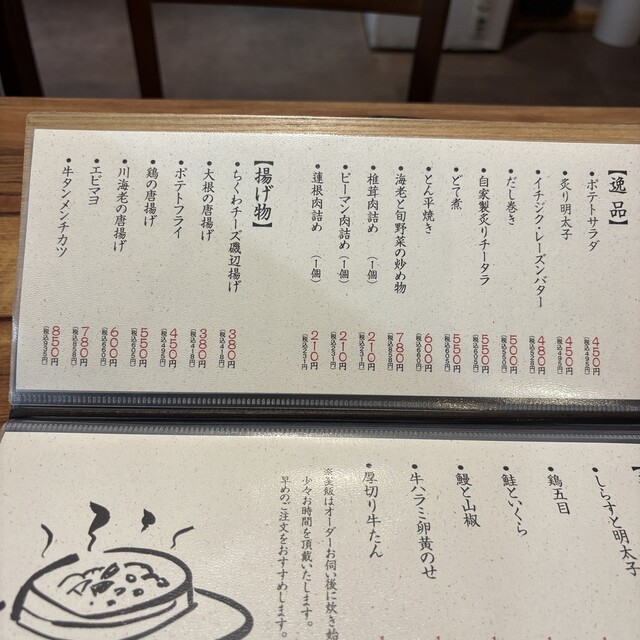 【逸品】
・ポテトサラダ 450円(税込495円)
・炙り明太子 450円(税込495円)
・イチジク・レーズンバター 480円(税込528円)
・だし巻き 500円(税込550円)
・自家製炙りチータラ 550円(税込605円)
・どて煮 550円(税込605円)
・とん平焼き 600円(税込660円)
・海老と旬野菜の炒め物 780円(税込858円)
・椎茸肉詰め(1個) 210円(税込231円)
・ピーマン肉詰め(1個) 210円(税込231円)
・蓮根肉詰め(1個) 210円(税込231円)
【揚げ物】
・ちくわチーズ磯辺揚げ 380円(税込418円)
・大根の唐揚げ 380円(税込418円)
・ポテトフライ 450円(税込495円)
・鶏の唐揚げ 550円(税込605円)
・川海老の唐揚げ 600円(税込660円)
・エビマヨ 780円(税込858円)
・牛タンメンチカツ 850円(税込935円)
・しらすと明太子
・鶏五目
・鮭といくら
・鰻と山椒
・牛ハラミ卵黄のせ
・厚切り牛たん
※釜飯はオーダーお伺い後に炊き始
少々お時間を頂戴いたします。
早めのご注文をおすすめします。